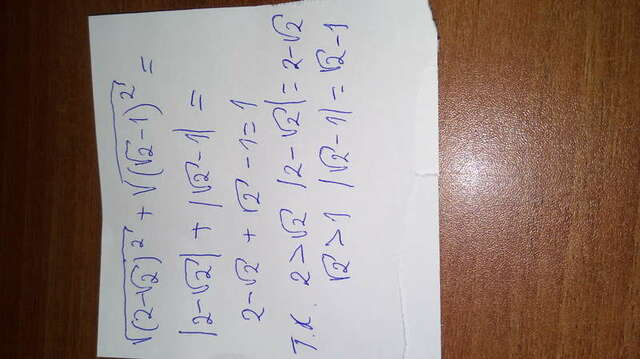 √(2-√2)² + √(√2-1)² =
|2-√2| + |√2-1| =
2-√2 + √2 -1=1
Т.К. 2>√2 |2-√2|=2-√2
√2>1 |√2-1|=√2-1